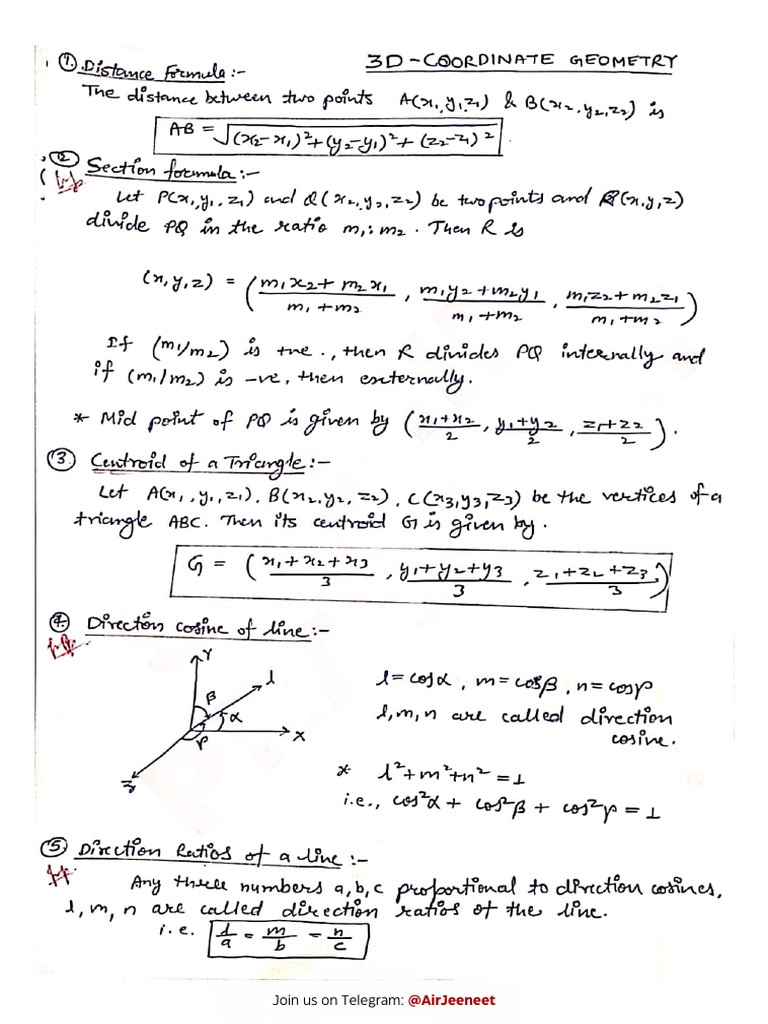 3D-COORDINATE GEOMETRY
1. Distance Formula:-
The distance between two points A(x₁, y₁, z₁) & B(x₂, y₂, z₂) is
AB = √(x₂-x₁)²+(y₂-y₁)²+(z₂-z₁)²
2 Section formula:-
Imp.
Let P(x₁, y₁, z₁) and Q(x₂, y₂, z₂) be two points and R(x,y,z)
divide PQ in the ratio m₁:m₂. Then R is
(x,y,z) = ( m₁x₂+m₂x₁ / m₁+m₂ , m₁y₂+m₂y₁ / m₁+m₂ , m₁z₂+m₂z₁ / m₁+m₂ )
If (m₁/m₂) is +ve., then R divides PQ internally and
if (m₁/m₂) is -ve, then externally.
* Mid point of PQ is given by ( x₁+x₂ / 2 , y₁+y₂ / 2 , z₁+z₂ / 2 ).
3 Centroid of a Triangle:-
Let A(x₁, y₁, z₁), B(x₂, y₂, z₂), C(x₃, y₃, z₃) be the vertices of a
triangle ABC. Then its centroid G is given by.
G = ( x₁+x₂+x₃ / 3 , y₁+y₂+y₃ / 3 , z₁+z₂+z₃ / 3 )
4. Direction cosine of line:-
Y
l
β
α
γ
X
Z
l=cosα, m=cosβ, n=cosγ
l,m,n are called direction
cosine.
* l²+m²+n²=1
i.e., cos²α + cos²β + cos²γ = 1
5. Direction Ratios of a line:-
Any three numbers a,b,c proportional to direction cosines,
l, m, n are called direction ratios of the line.
i.e. l/a = m/b = n/c
Join us on Telegram: @AirJeeneet